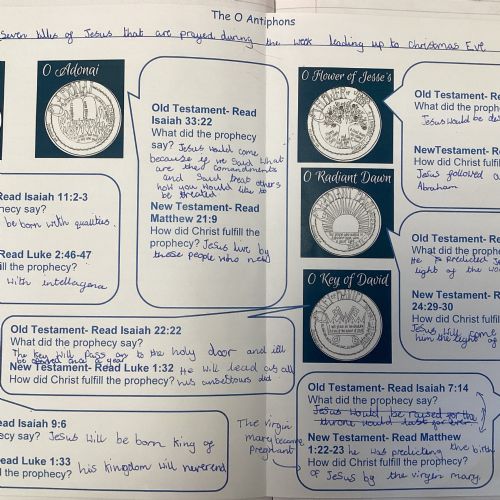 The O Antiphons
seven titles of Jesus that are prayed during the week leading up to Christmas Eve
O Adonai
Old Testament- Read
Isaiah 33:22
What did the prophecy
say? Jesus would come
because if we said what
are the comandments
and said treat others
how you would like to
be treated
New Testament- Read
Matthew 21:9
How did Christ fulfill the
prophecy? Jesus live by
those people who
ead Isaiah 11:2-3
ecy say?
be born with qualities.
Read Luke 2:46-47
fill the prophecy?
with
Old Testament- Read Isaiah 22:22
What did the prophecy say?
The key will pass on to the holy door and will
be opened end of year
New Testament- Read Luke 1:32 He will lead us all
How did Christ fulfill the prophecy? his ansestours did
ead Isaiah 9:6
ecy say? Jesus will be born king of
ead Luke 1:33
the prophecy? his kingdom will neverend
O Flower of Jesse's
Old Testament-
What did the
Jesus would be
New Testament-
How did Christ
Jesus followed
Abraham
O Radiant Dawn
Old Testament-
What did the
He predicted
light of the
New Testament-
24:29-30
How did Christ
Jesus will come
him the light of
O Key of David
Old Testament- Read Isaiah 7:14
What did the prophecy say?
Jesus would be raised for the
throne would last for ever
The virgin
mary became
pregnant
New Testament- Read Matthew
1:22-23 he was predicting the birth
How did Christ fulfill the prophecy?
of Jesus by the virgin mary.